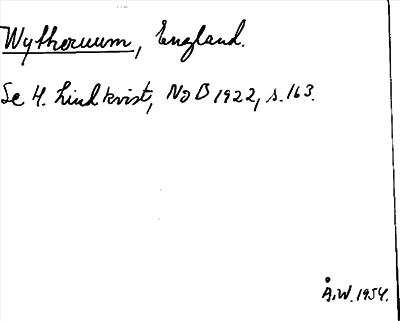 Wythernum, England.
Se H. Lindkvist, NoB 1922, s. 163.
Å.W. 1954.